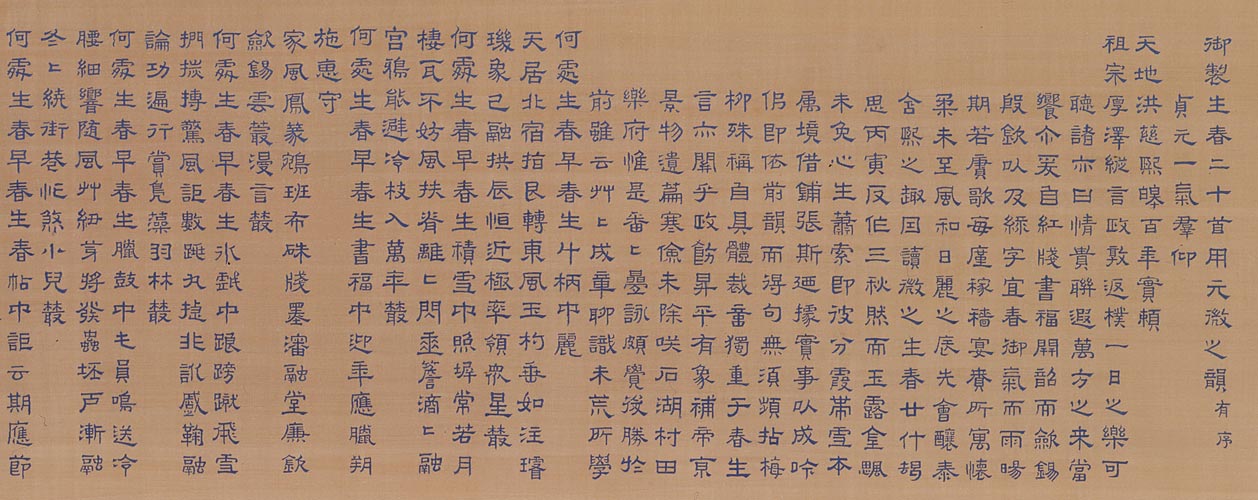 御製生春二十首用元微之韻有序
貞元一氣羣仰
天地洪慈熙皞百年實賴
祖宗厚澤縱言政敦返樸一日之樂可
聽諸亦曰情貴聯遐萬方之來當
饗亦爰自紅牋書福開韶而歛錫
殷歛以及綵字宜春御氣而雨暘
期若賡歌每廑稼穡宴賚所寓懷
柔未至風和日麗之辰先會釀泰
含熙之趣因讀微之生春廿什曷
思丙寅反作三秋然而玉露金飈
未免心生蕭索即彼分霞帶雪本
属境借鋪張斯迺據實事以成吟
仍即依前韻而得句無須頻拈梅
柳殊稱自具體裁畱獨重于春生
言亦關乎政飭昇平有象補帝京
景物遺篇寒儉未除咲石湖村田
樂府惟是番〻疊詠頗覺後勝於
前雖云艸〻成章聊識未荒所學
何處生春早春生斗柄中麗
天居北宿指艮轉東風玉杓垂如注璿
璣象已融拱辰恒近極率領眾星叢
何處生春早春生積雪中照墀常若月
棲瓦不妨風扶脊離〻閃垂簷滴〻融
宮鴉能避冷枝入萬年叢
何處生春早春生書福中迎年應臘朔
施惠守
家風鳳篆鵷班布硃牋墨瀋融堂廉欽
歛錫雲叢漫言叢
何處生春早春生冰戲中踉蹡蹴飛雪
捫搏驚風詎數丸捷非訛蹙鞠融
論功遍行賞鳧藻羽林叢
何處生春早春生臘鼓中毛員鳴送冷
腰細響隨風艸紐芽將發蟲坯戶漸融
冬〻統街巷忙煞小兒叢
何處生春早春生春帖中詎云期應節